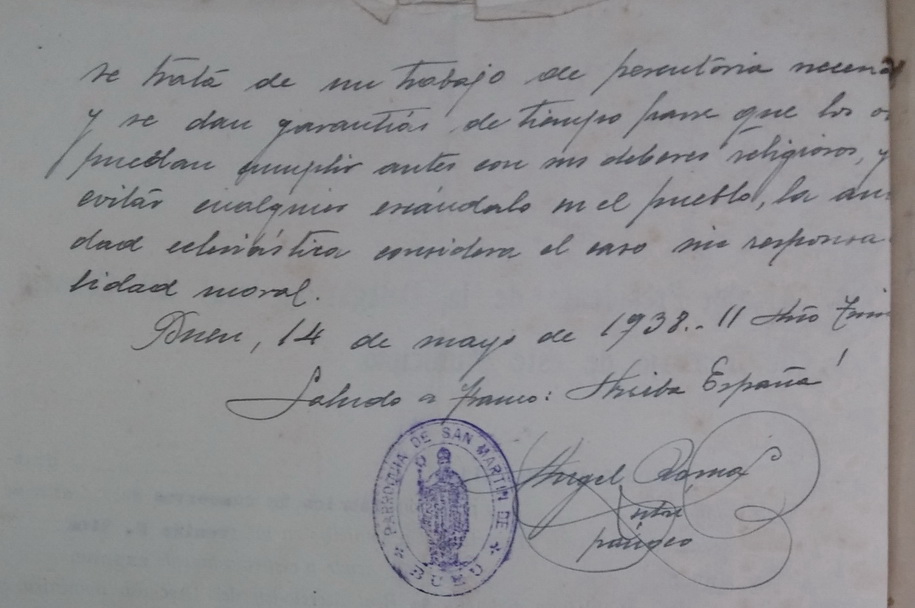 se trata de un trabajo de perentoria necesi
y se dan garantías de tiempo para que los o
puedan cumplir antes con sus deberes religiosos, y
evitar cualquier escándalo en el pueblo, la au
dad eclesiástica considera el caso sin responsa
lidad moral.
Bueu, 14 de mayo de 1938.. II Año Triun
Saludo a Franco: Arriba España!
Angel
párroco
PARROQUIA DE SAN MARTIN DE BUEU